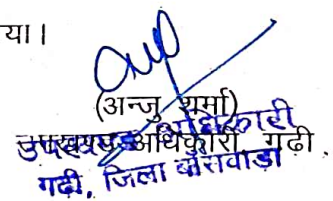 या।
(अन्जु शर्मा)
उपखण्ड अधिकारी, गढ़ी
उपखण्ड अधिकारी
गढी, जिला बांसवाड़ा